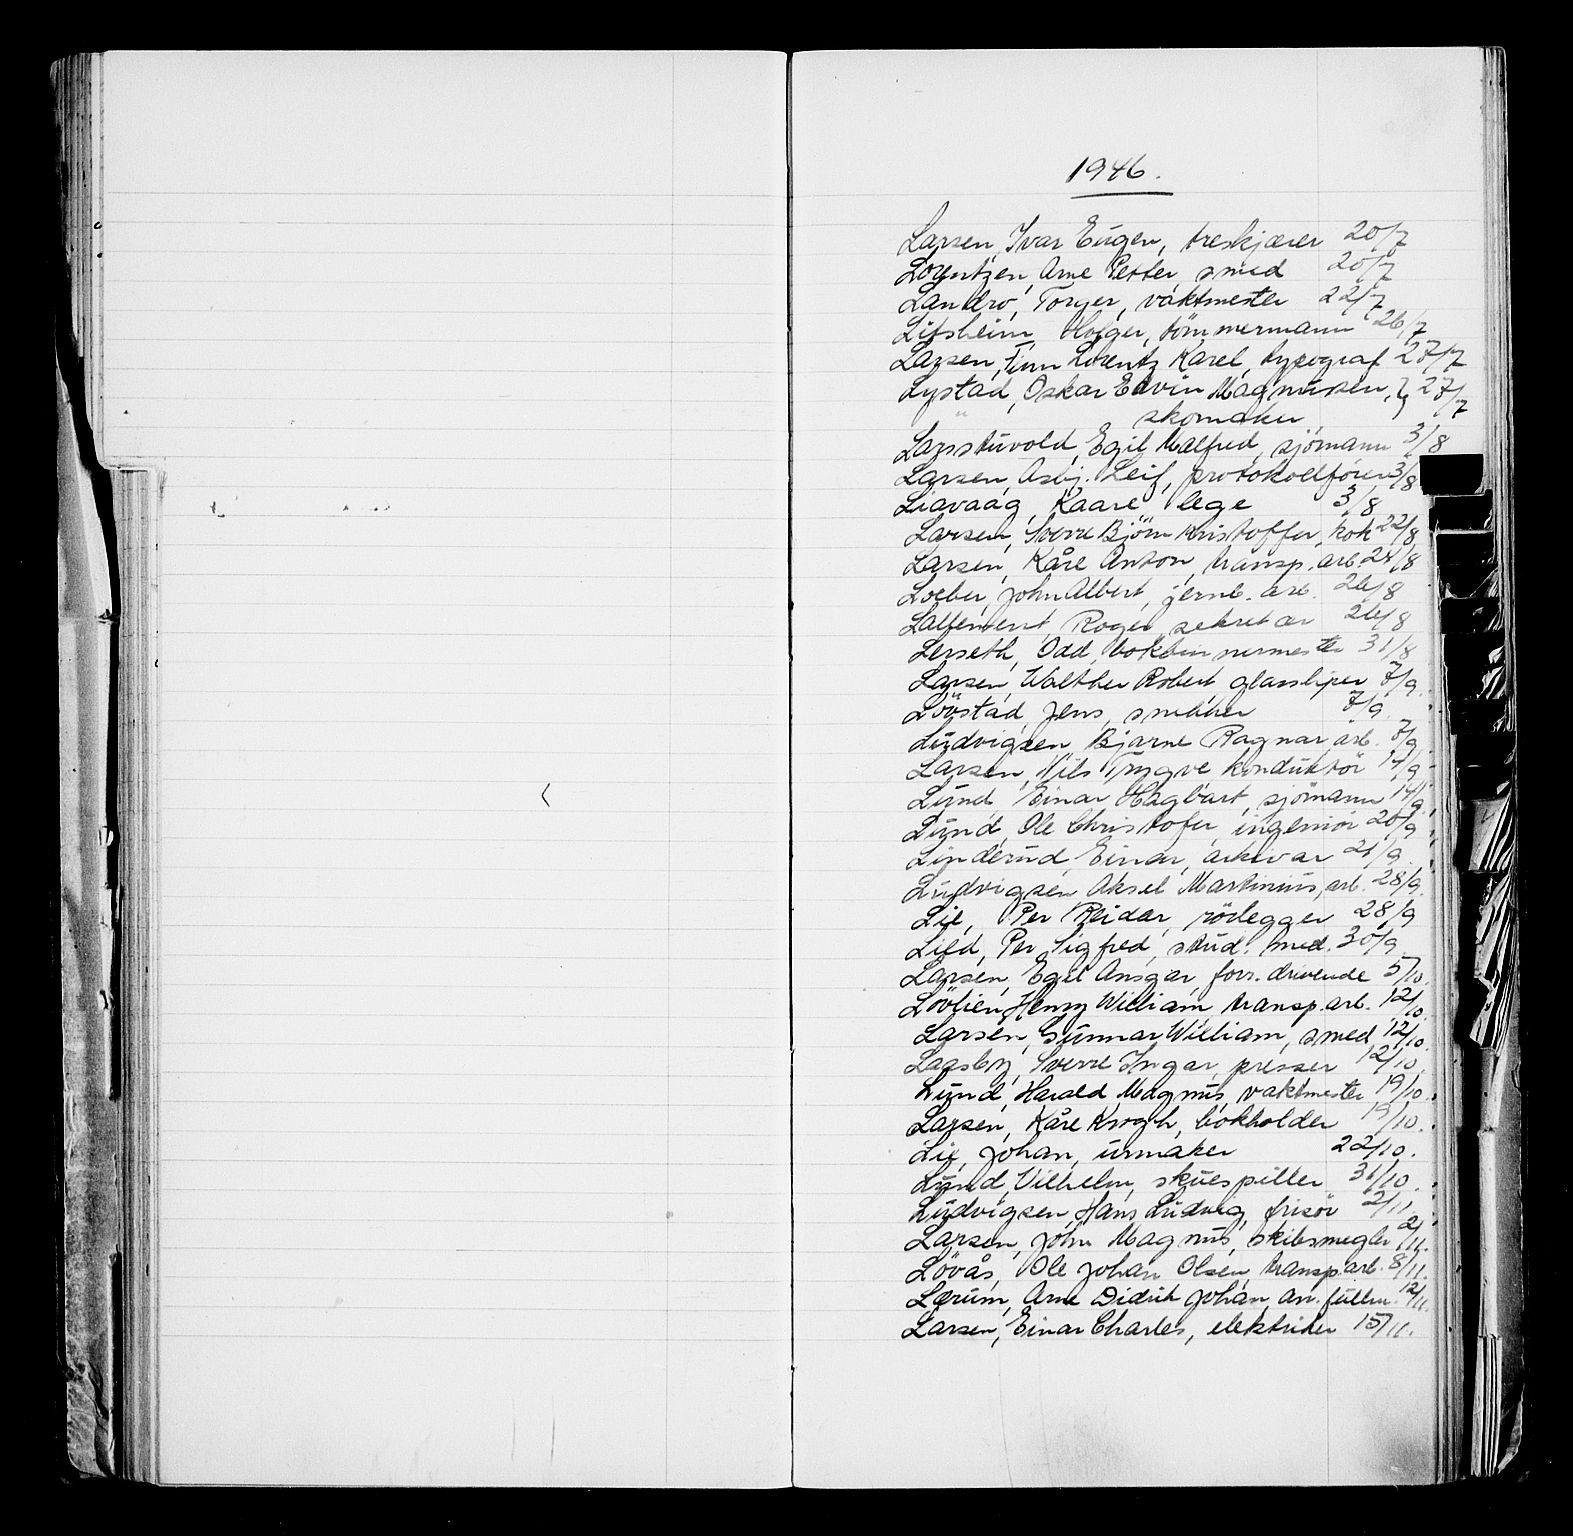 1946.
Larsen, Ivar Eugen, treskjærer 20/7
Lorentzen, Arne Petter, smed 20/7
Landrø, Torger, vaktmester 22/7
Litsheim, Holger, tömmermann 26/7
Larsen, Finn Lorentz Karel, typograf 27/7
Lystad, Oskar Edvin Magnussen, } 27/7
" skomaker
Larsstuvold, Egil Malfred, sjömann 3/8
Larsen, Asbj. Leif, protokollförer 3/8
Liavaag, Kaare lege 3/8
Larsen, Sverre Björn Kristoffer, kok 22/8
Larsen, Kåre Anton, transp. arb. 24/8
Loeber, John Albert, jernb. arb. 26/8
Lallement, Roger, sekretær 26/8
Lerseth, Odd, bokbinnermester 31/8
Larsen, Walther Robert, glassliper 7/9.
Lövstad, Jens, snekker 7/9.
Ludvigsen, Bjarne Ragnar, arb. 7/9
Larsen, Nils Trygve, konduktör 14/9
Lund, Einar Hagbart, sjömann 14/9
Lund, Ole Christofer, ingeniör 20/9
Linderud, Einar, arkivar 21/9.
Ludvigsen, Aksel Martinius, arb. 28/9.
Lie, Per Reidar, rörlegger 28/9
Lied, Per Sigfred, stud. med. 30/9.
Larsen, Egil Ansgar, forr. drivende 5/10.
Lövlien, Henry William, transp. arb. 12/10.
Larsen, Gunnar William, smed 12/10.
Laasby, Sverre Ingar, presser 12/10.
Lund, Harald Magnus, vaktmester 19/10.
Larsen, Kåre Krogh, bokholder 19/10.
Lie, Johan, urmaker 22/10.
Lund, Vilhelm, skuespiller 31/10.
Ludvigsen, Hans Ludvig, frisör 2/11.
Larsen, John Magnus, skibsmegler 2/11.
Lövås, Ole Johan Olsen, transp. arb. 8/11.
Lærum, Arne Didrik Johan, an. fullm. 12/11.
Larsen, Einar Charles, elektriker 15/11.